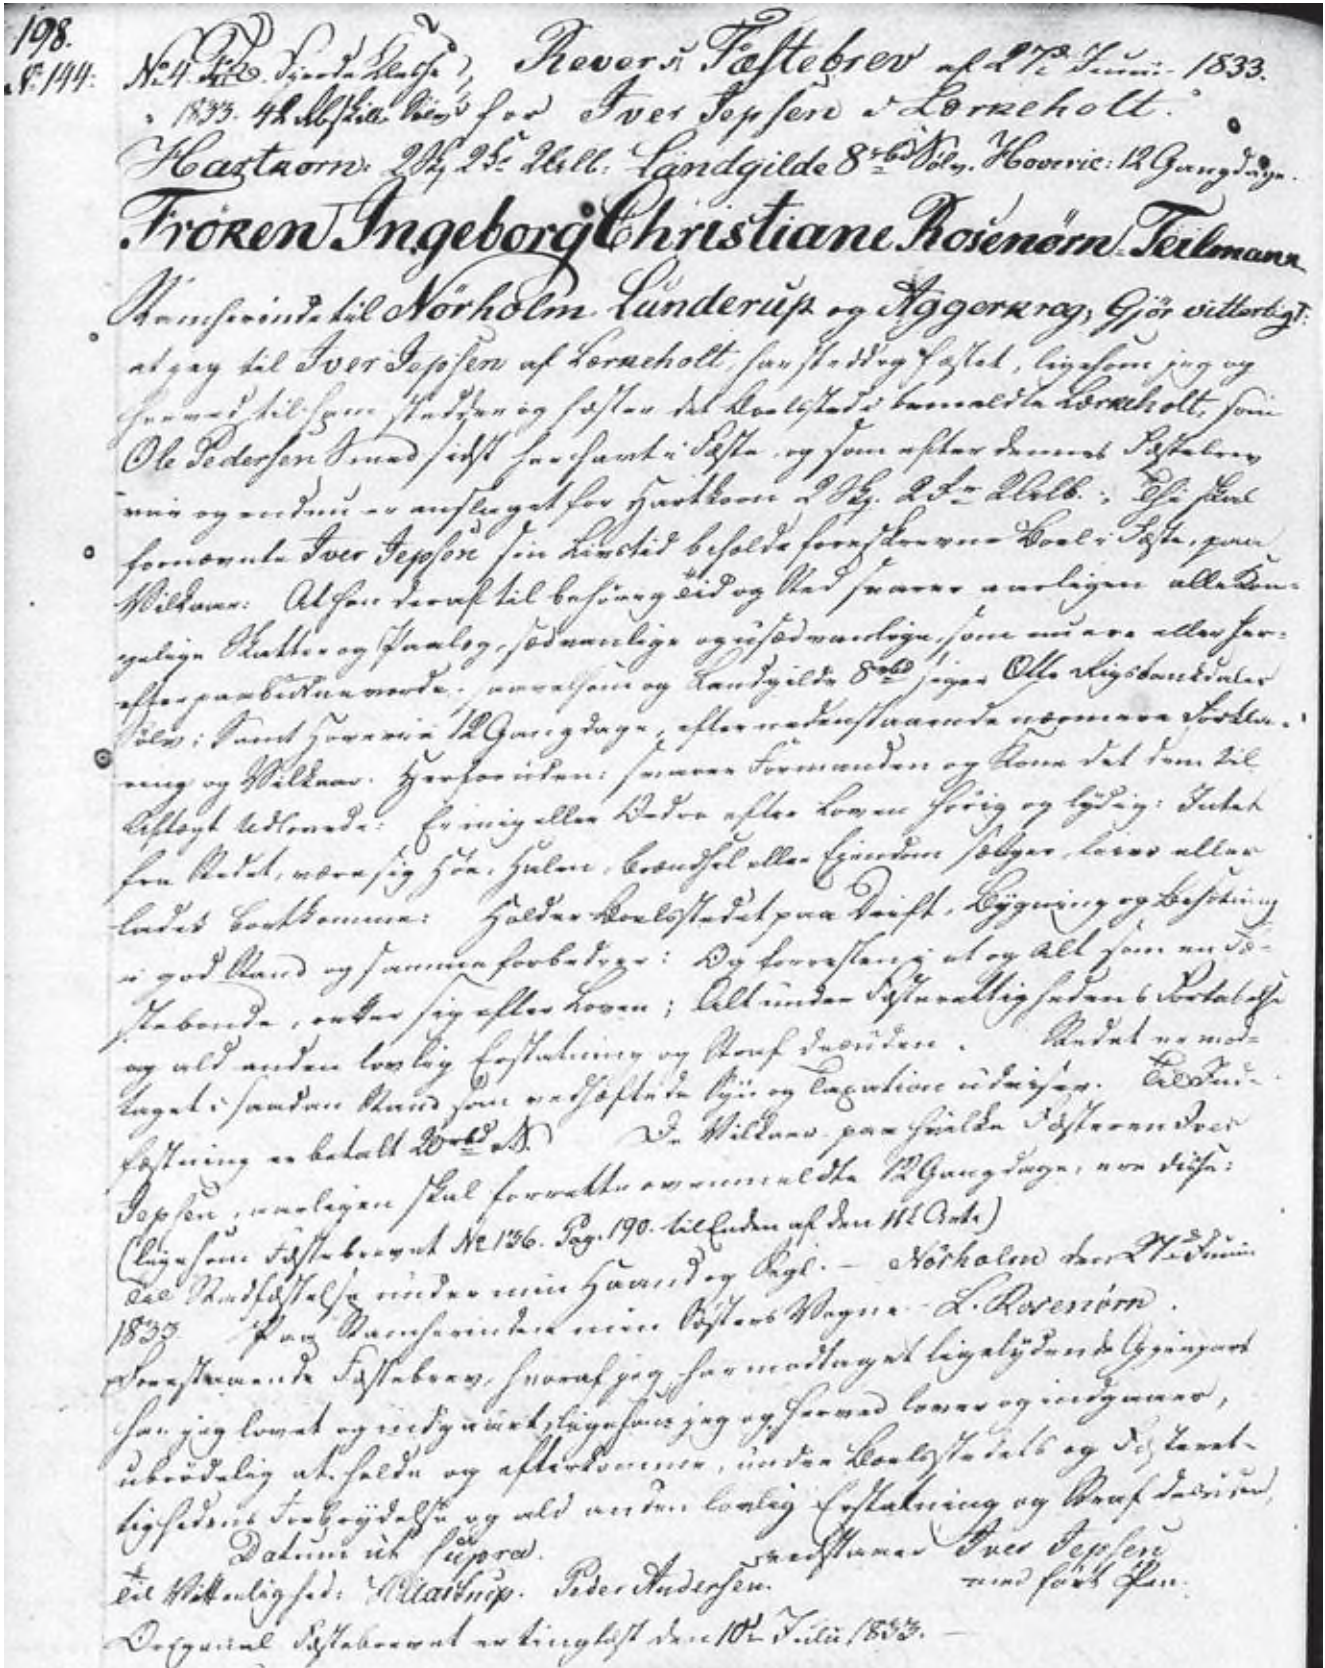 198.
No. 144:
No. 4. Fjerde Classe, Revers, Fæstebrev af 27de Junii 1833.
1833. 42 Rbskill. Sølv for Iver Jepsen i Lærkeholt.
Hartkorn: 2 Skp. 2 Fr. 2 Alb. Landgilde 8 rbd Sølv. Hoverie: 12 Gangdage.
Frøken Ingeborg Christiane Rosenørn-Teilmann
Stamherinde til Nørholm Lunderup og Aggerkrog, Gjør vitterligt:
at jeg til Iver Jepsen af Lærkeholt, har stedt og fæstet, ligesom jeg og
herved til ham stedder og fæster det Boelssted i bemeldte Lærkeholt, som
Ole Pedersen Smed sidst har havt i Fæste og som efter dennes Fæstebrev
var og endnu er anslaget for Hartkorn 2 Skp. 2 Fr. 2 Alb.: Thi skal
fornævnte Iver Jepsen sin Livstid beholde foreskrevne Boel i Fæste, paa
Vilkaar: At han deraf til behørig Tid og Sted svarer aarligen alle Kon-
gelige Skatter og Paalæg, sædvanlige og usædvanlige, som nu ere eller her-
efter paabudne vorde, saavelsom og Landgilde 8 rbd siger Otte Rigsbankdaler
Sølv; Samt Hoverie 12 Gangdage, efter nedenstaaende nærmere Forkla-
ring og Vilkaar. Herforuden: svarer Formanden og Kone det dem til
Aftægt Udlovede: Er mig eller Ordre efter Loven hørig og lydig: Intet
fra Stedet, være sig Høe, Halm, Brændsel eller Eiendom sælger, laaner eller
lader bortkomme: Holder Boelsstedet paa Drift, Bygning og Besætning
i god Stand og samme forbedrer: Og forresten i et og Alt som en Fæ-
stebonde, retter sig efter Loven; Alt under Fæsterettighedens Fortabelse
og ald anden lovlig Erstatning og Straf desuden. Stedet er mod-
taget i saadan Stand som vedhæftede Syn og Taxation udviser. Til Ind-
fæstning er betalt 20 rbd S. De Vilkaar paa hvilke Fæsteren Iver
Jepsen, aarligen skal forrette ovenmeldte 12 Gangdage, ere disse:
(ligesom Fæstebrevet No. 136. Pag. 190. til Enden af den 11te Post.)
Til Stadfæstelse under min Haand og Segl. - Nørholm den 27de Junii
1833. Paa Stamherinden min Søsters Vegne L. Rosenørn.
Forestaaende Fæstebrev, hvoraf jeg har modtaget ligelydende Gjenpart
har jeg lovet og indgaaet, ligesom jeg og herved lover og indgaaer,
ubrødelig at holde og efterkomme, under Boelsstedets og Fæsteret-
tighedens Forbrydelse og ald anden lovlig Erstatning og Straf desuden,
Datum ut supra. vedstaaer Iver Jepsen
Til Vitterlighed: Peder Andersen. med ført Pen.
Original Fæstebrevet er tinglæst den 10de Julii 1833.